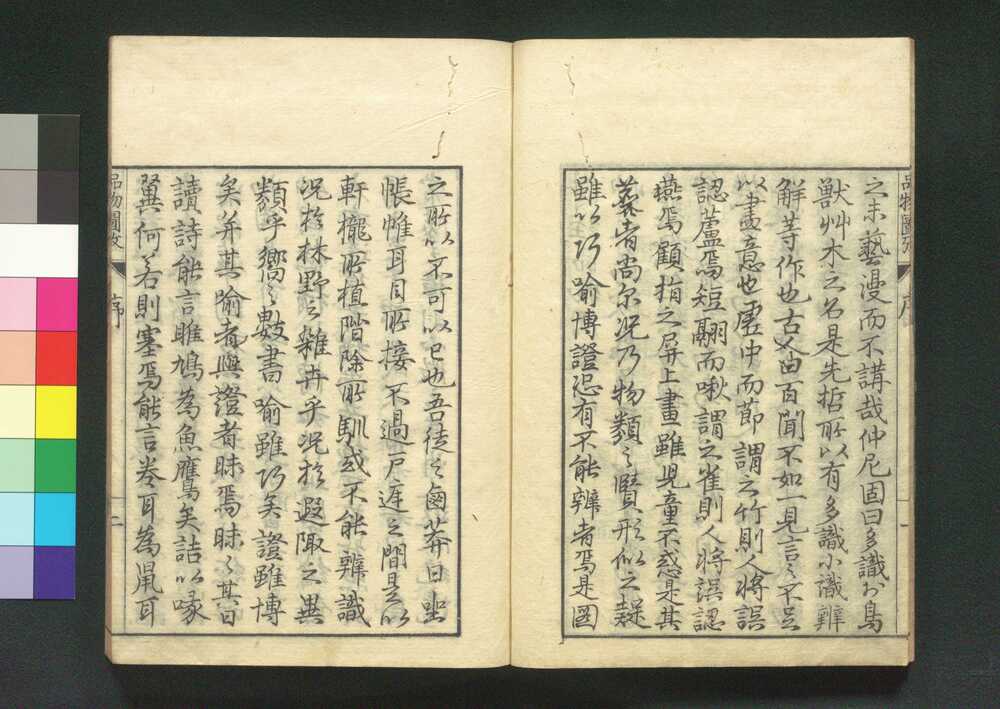 品物圖攷 序 一
之末藝漫而不講哉仲尼固曰多識於鳥
獸艸木之名是先哲所以有多識小識辨
解等作也古人曰百聞不如一見言之不足
以盡意也虛中而節謂之竹則人將誤
認蘆焉短翮而啾謂之雀則人將誤認
燕焉顧指之屏上畫雖兒童不惑是其
藝者尚尔況乃物類之賢形似之疑
雖以巧喻博證恐有不能辨者焉是圖
之所以不可以已也吾徒之鹵莽日坐
帳帷耳目所接不過戶庭之間是以
軒櫳所植階除所馴或不能辨識
況於林野之雜卉乎況於遐陬之異
類乎嚮之數書喻雖巧矣證雖博
矣并其喻者與證者昧焉昧之其曰
讀詩能言雎鳩為魚鷹矣詰以喙
翼何若則塞焉能言卷耳為鼠耳
品物圖攷 序 二